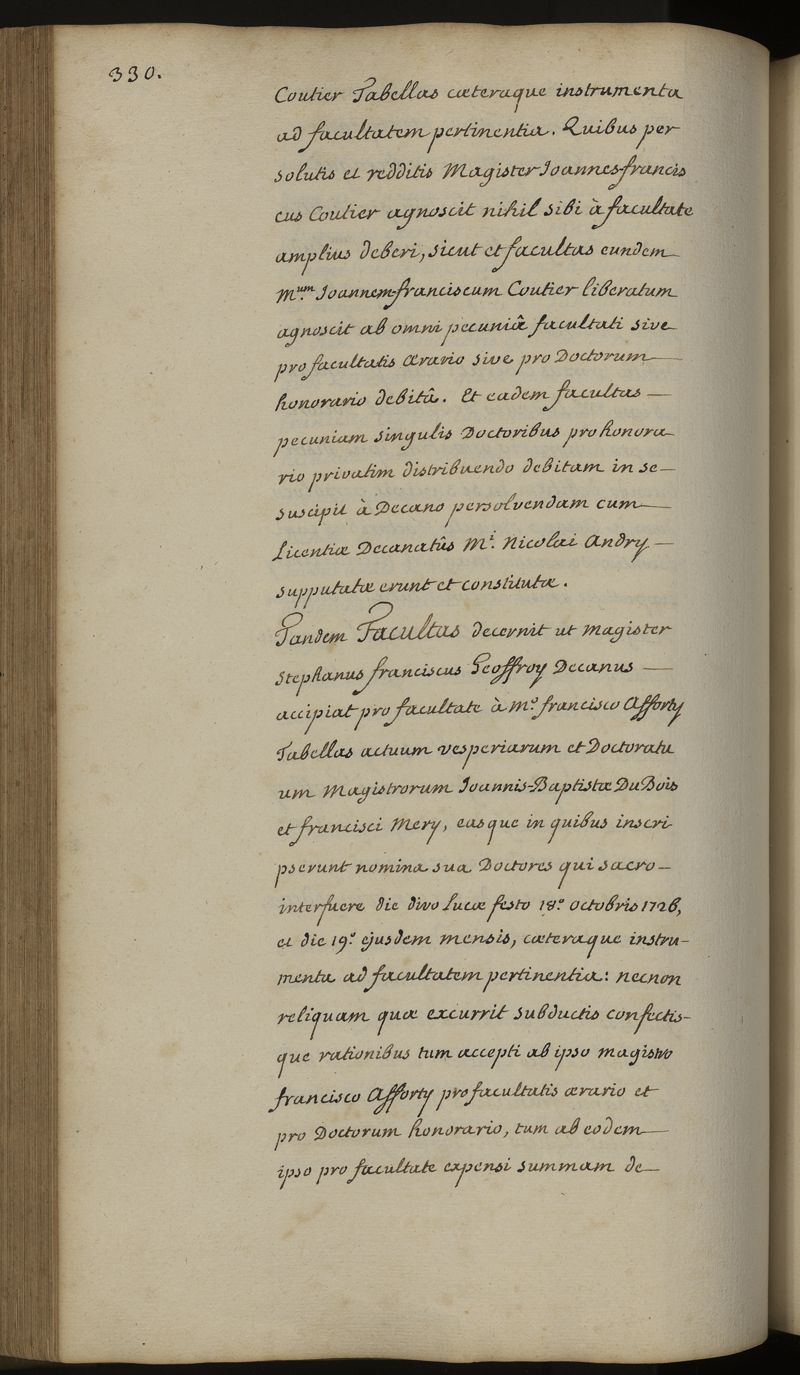 330.
Coutier Tabellas cæteraque instrumenta
ad facultatem pertinentia. Quibus per
solutis et redditis Magister Joannes-francis
cus Coutier agnoscit nihil sibi à facultate
amplius deberi, sicut et facultas eundem
M.um Joannem-franciscum Coutier liberatum
agnoscit ab omni pecuniâ facultati sive
pro facultatis ærario sive pro Doctorum
honorario debitâ. Et eadem facultas
pecuniam singulis Doctoribus pro honora
rio privatim distribuendo debitam in se
suscipit à Decano persolvendam cum
Licentiæ Decanatûs M.i Nicolai Andry
supputatæ erunt et constitutæ.
Tandem Facultas decernit ut Magister
Stephanus franciscus Geoffroy Decanus
accipiat pro facultate à M.o francisco Afforty
Tabellas actuum vesperiarum et Doctoratu
um Magistrorum Joannis-Baptistæ DuBois
et francisci Mery, easque in quibus inscri
pserunt nomina sua Doctores qui sacro
interfuere die divo Lucæ festo 18.o octobris 1726,
et die 19.o ejusdem mensis, cæteraque instru-
menta ad facultatem pertinentia: necnon
reliquam quæ excurrit subductis confectis-
que rationibus tum accepti ab ipso magistro
francisco Afforty pro facultatis ærario et
pro Doctorum honorario, tum ab eodem
ipso pro facultate expensi summam de